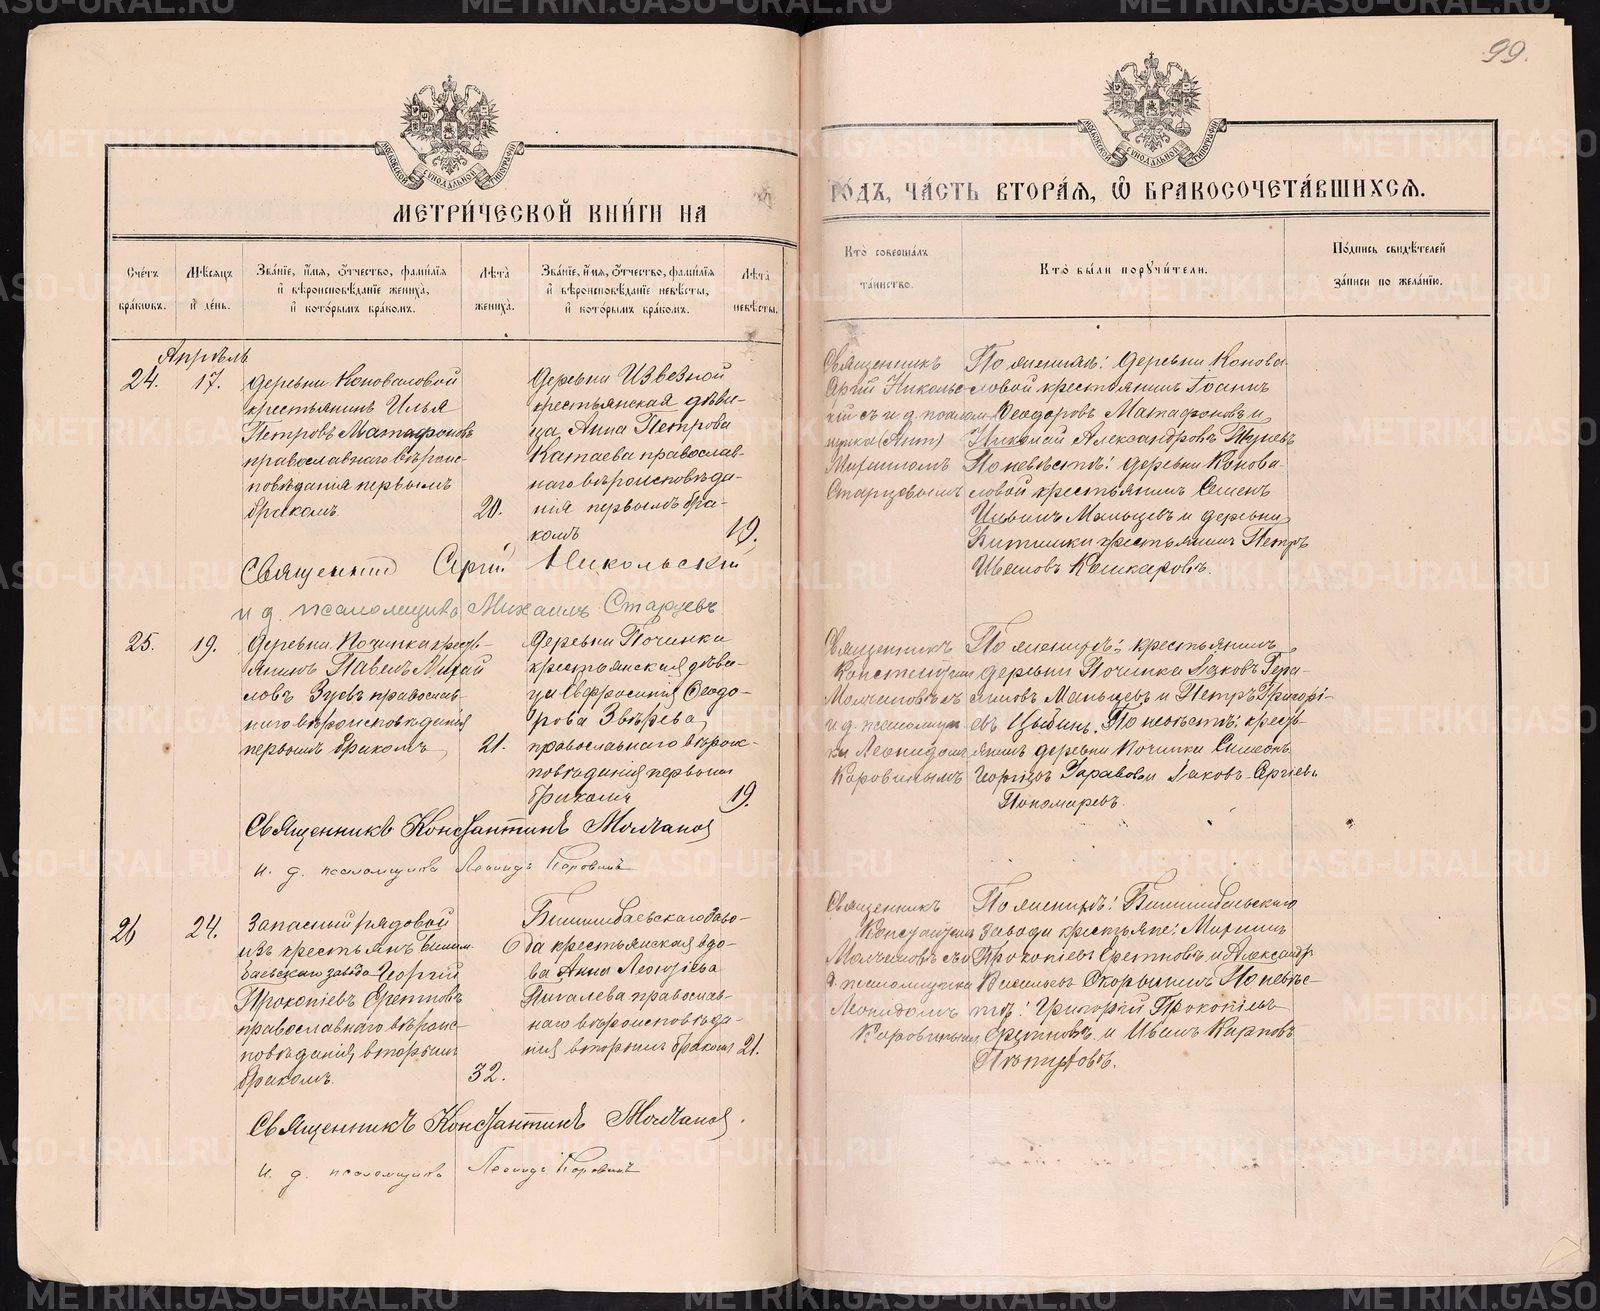 99.
МЕТРИ́ЧЕСКОЙ КНИ́ГИ НА
ГО́ДЪ, ЧА́СТЬ ВТОРА́Я, Ѡ҆ БРАКОСОЧЕТА́ВШИХСЯ.
МОСКОВСКОЙ СУНОДАЛЬНОЙ ТИПОГРАФІИ
МОСКОВСКОЙ СУНОДАЛЬНОЙ ТИПОГРАФІИ
Сче́тъ
бра́ковъ.
Мѣ́сяцъ
и҆ де́нь.
Зва́нїе, и҆́мя, ѻ҆́тчество, фами́лїя
и҆ вѣроисповѣ́данїе жениха̀,
и҆ кото́рымъ бра́комъ.
Лѣ́та
жениха̀.
Зва́нїе, и҆́мя, ѻ҆́тчество, фами́лїя
и҆ вѣроисповѣ́данїе невѣ́сты,
и҆ кото́рымъ бра́комъ.
Лѣ́та
невѣ́сты.
Кто̀ соверша́лъ
та́инство.
Кто̀ бы́ли порꙋчи́тели.
По́дпись свидѣ́телей
за́писи по жела́нїю.
Апрѣль
24.
17.
деревни Коноваловой
крестьянинъ Илья
Петровъ Матафоновъ
православнаго вѣроис-
повѣданія первымъ
бракомъ
20.
деревни Извезной
крестьянская дѣви-
ца Анна Петрова
Катаева православ-
наго вѣроисповѣда-
нія первымъ бра-
комъ
19.
Священникъ
Сргій Никольс-
кій съ и д псалом
щика
Михаиломъ
Старцевымъ
По женихѣ: деревни Конова-
ловой крестьянинъ Іоаннъ
Ѳеодоровъ Матафоновъ и
Николай Александровъ
По невѣстѣ: деревни Конова-
ловой крестьянинъ Семенъ
Ильинъ Мальцевъ и деревни
крестьянинъ Петръ
Ивановъ Кашкаровъ.
Священникъ Сргій Никольскій
и д. псаломщика Михаилъ Старцевъ
25.
19.
деревни Починка кресть-
янинъ Павелъ Михай
ловъ Зуевъ православ-
наго вѣроисповѣданія
первымъ бракомъ
21.
деревни Починка
крестьянская дѣви-
ца Евфросинія Ѳеодо-
рова Звѣрева
православнаго вѣроис-
повѣданія первымъ
бракомъ
19.
Священникъ
Константин
Молчановъ съ
и д псаломщи
ка Леонидомъ
Коровинымъ
По женихѣ: крестьянинъ
деревни Починка Іаковъ Гера-
симовъ Мальцевъ и Петръ Григорі-
евъ Цыбинъ. По невѣстѣ: кресть-
янинъ деревни Починка Симеонъ
и Іаковъ Сергіевъ
Пономаревъ.
Священникъ Константинъ Молчановъ
и. д. псаломщика Леонидъ Коровинъ
26
24.
Запасный рядовой
изъ крестьянъ Билим
баевскаго завода Георгій
Прокопіевъ Еретновъ
православнаго вѣроис-
повѣданія, вторымъ
бракомъ.
32.
Билимбаевскаго заво-
да крестьянская вдо-
ва Анна Леонтіева
Пигалева православ-
наго вѣроисповѣда-
нія вторымъ бракомъ
21.
Священникъ
Константин
Молчановъ съ и
д псаломщика
Леонидомъ
Коровинымъ
По женихѣ: Билимбаевскаго
завода крестьяне: Михаилъ
Прокопіевъ Еретновъ и Александръ
Васильевъ Скорынинъ По невѣс-
тѣ: Григорій Прокопіевъ
Еретновъ и Иванъ Карповъ
Пѣтуховъ.
Священникъ Константинъ Молчановъ.
и. д. псаломщика Леонидъ Коровинъ
METRIKI.GASO-URAL.RU